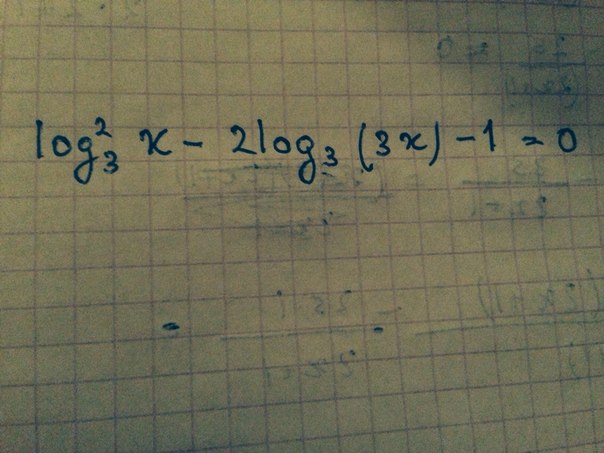 log₃² x - 2log₃ (3x) - 1 = 0